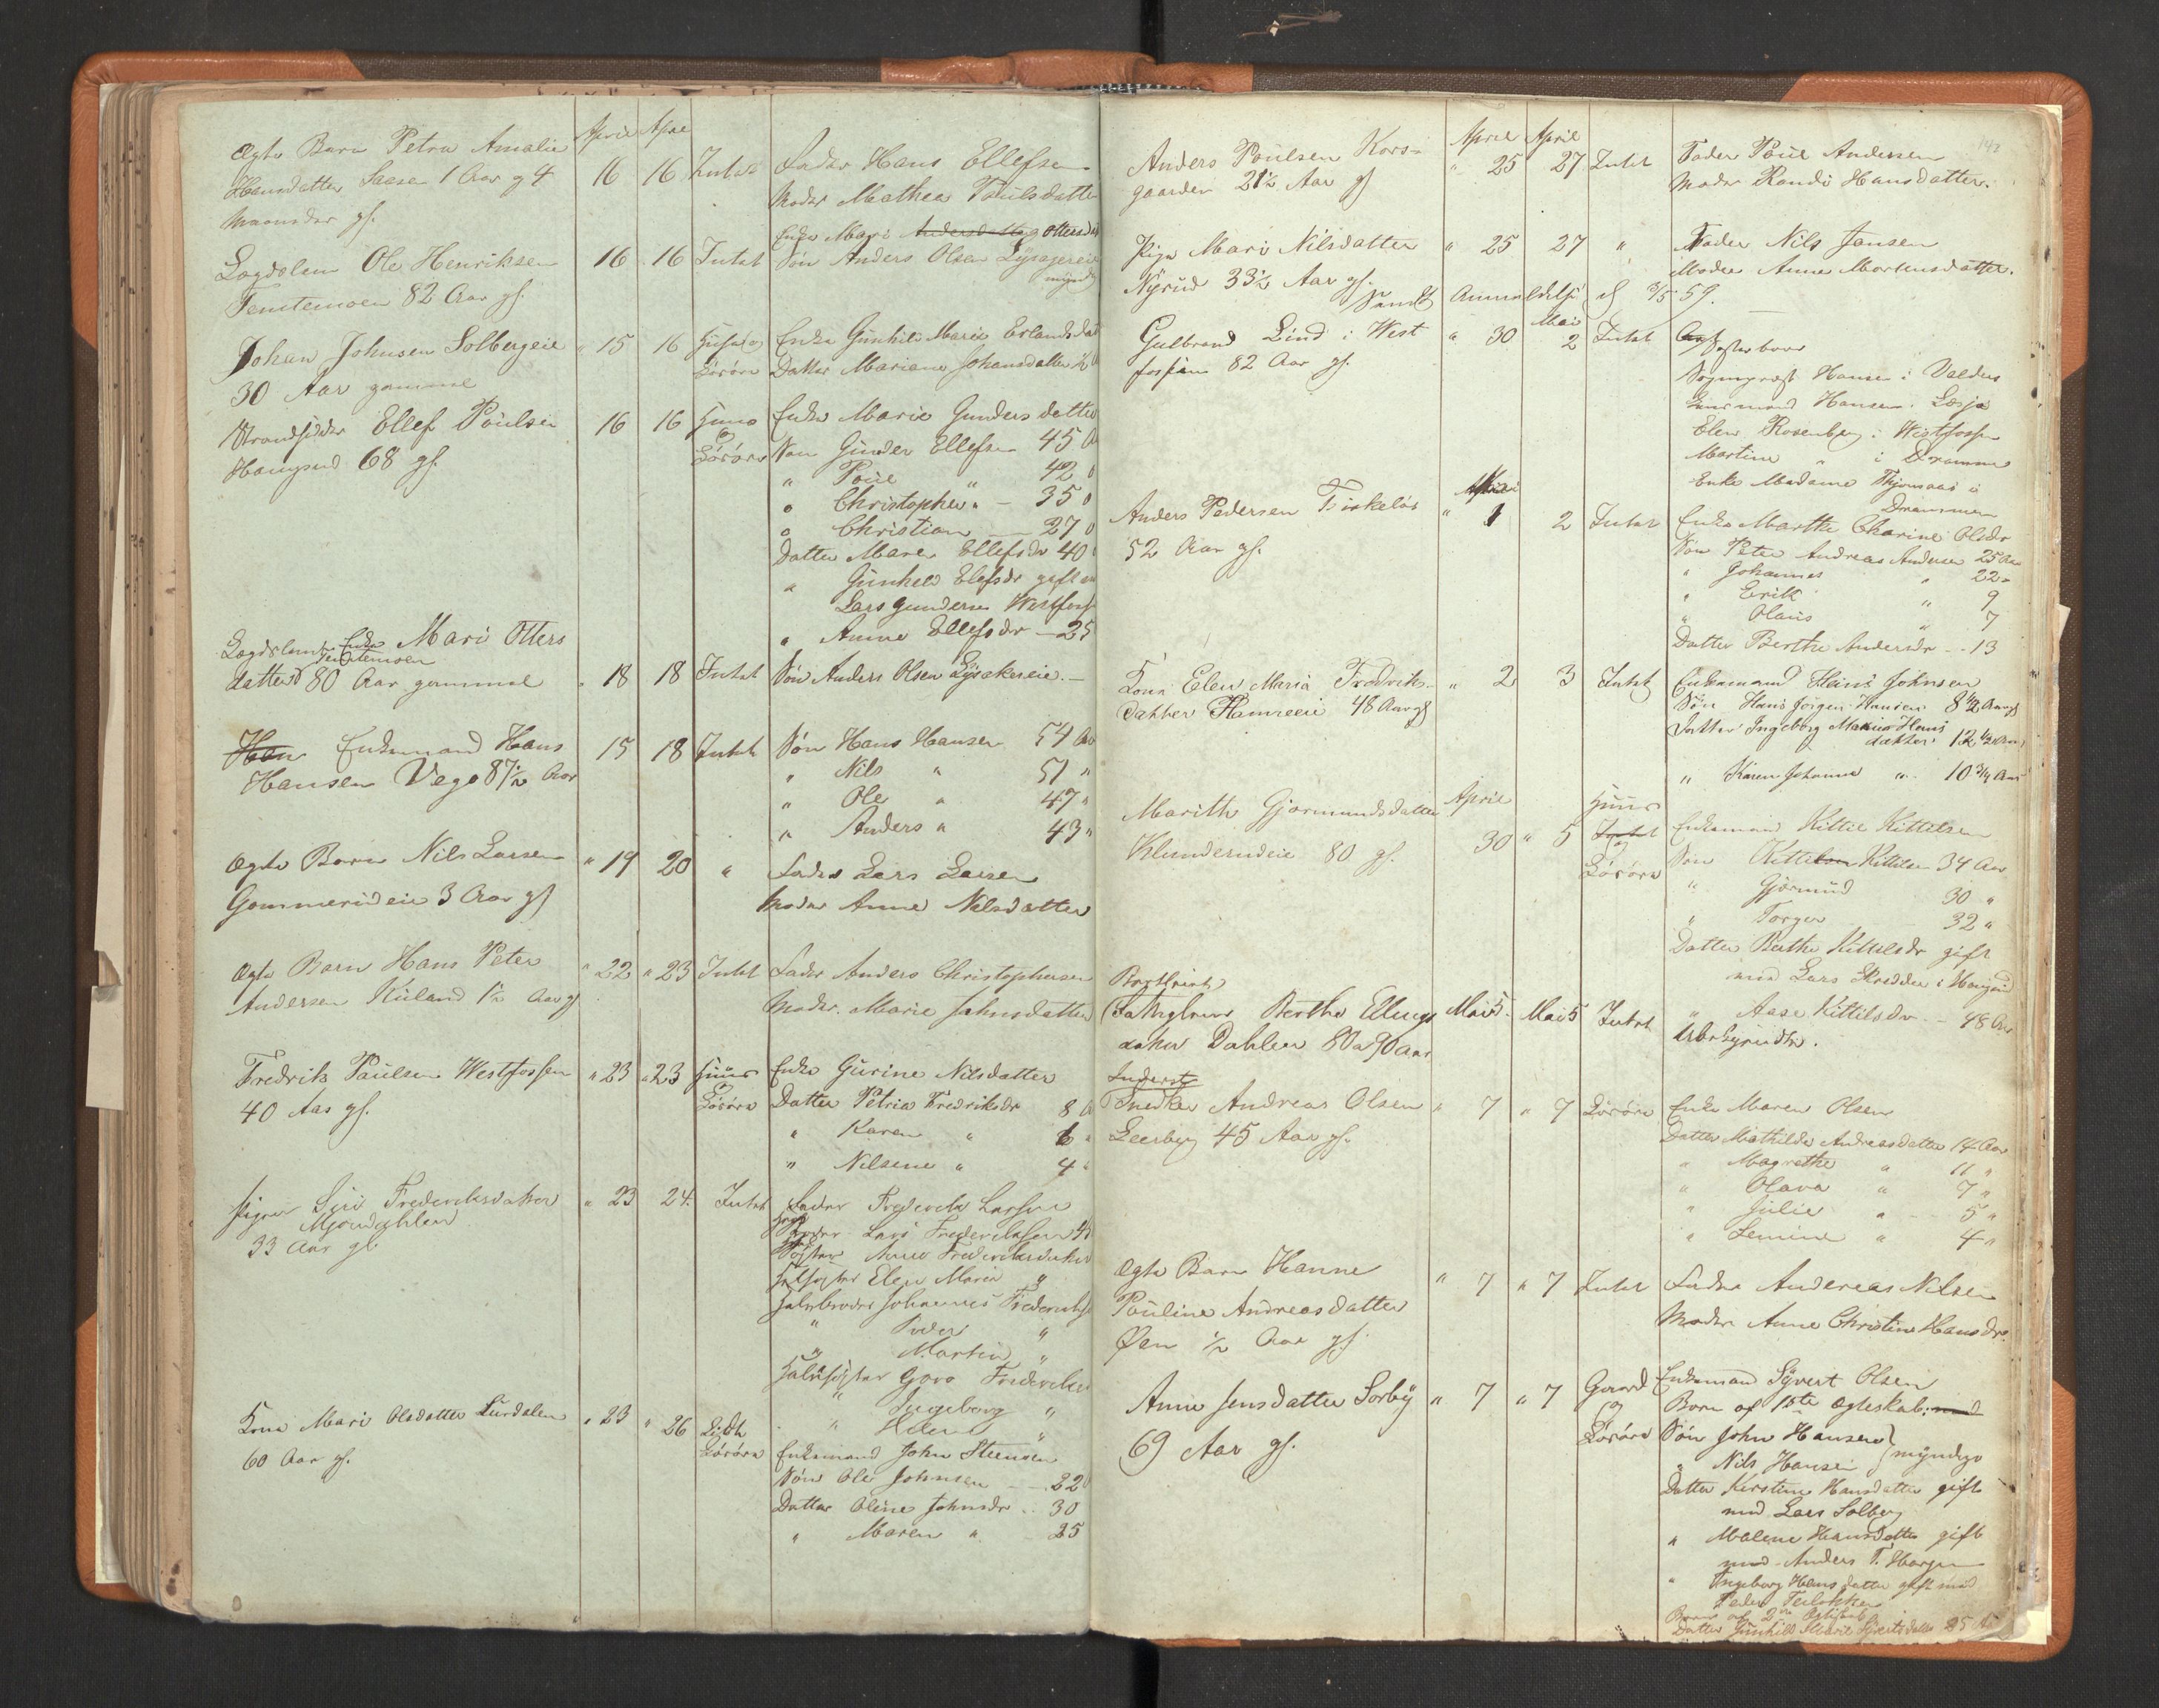 April Apre
Ægte Barn Petra Amalie
Hansdatter Saasen 1 Aar og 4
Maaneder gl.
16 16 Intet
Fader Hans Ellefsen
Moder Mathea Poulsdatter
Lægdslem Ole Henriksen
Temtemoen 82 Aar gl.
16 16 Intet
Enke Mari Andersdatter Ottersdat
Søn Anders Olsen
myndig
Johan Johnsen Solbergeie
30 Aar gammel
" 15 16 Huus og
Løsøre
Enke Gunhild Marie Erlandsdat
Datter Mariane Johansdatter 1/2 A
Strandsidder Ellef Poulsen
Hougsund 68 gl.
16 16 Huus
og
Løsøre
Enke Marie Gundersdatter
Søn Gunder Ellefsen 45 A
" Poul " 42 "
" Christopher " - 35 "
" Christian 27 "
Datter Maren Ellefsdr 40 "
" Gunhild Elefsdr gift m
Lars Gundersen Westfoss
" Anne Ellefsdr - 25
Lægdslem Enke Mari Otters
Temtemoen
datter 80 Aar gammel
" 18 18 Intet
Søn Anders Olsen Lysakereie. -
Han Enkemand Hans
Hansen Vego 87 1/2 Aar
15 18 Intet
Søn Hans Hansen 54 Aar
" Nils " 51 "
" Ole " 47 "
" Anders " 43 "
Ægte Barn Nils Larsen
Gommerudeie 3 Aar gl
" 19 20 "
Fader Lars Larsen
Moder Anne Nilsdatter
Ægte Barn Hans Peter
Andersen Ruland 1 1/2 Aar gl
" 22 " 23 Intet
Fader Anders Christophersen
Moder Marie Johnsdatter
Fredrik Paulsen Westfossen
40 Aar gl.
" 23 " 23 Huus
og
Løsøre
Enke Gurine Nilsdatter
Datter Petria Fredriksdr 8 A
" Karen " 6 "
" Nilsine " 4 "
Pigen Siri Frederiksdatter
Mjøndahlen
33 Aar gl.
" 23 24. Intet
Fader Frederik Larsen
Broder Lars Frederiksen
Søster Anne Frederiksdatter
Halfsøster Elen Maria "
Halvbroder Johannes Frederiks
" Peder "
" Martin "
Halvsøster Goro Frederiks
" Ingeborg "
" Helene "
Kone Mari Olsdatter Lurdalen
60 Aar gl.
" 23 " 26 Lidt
Løsøre
Enkemand John Steensen
Søn Ole Johnsen - 32
Datter Oline Johnsdr .. 30
" Maren " 25
142
April April
Anders Poulsen Kors-
gaarden 21 1/2 Aar gl
" 25 27 Intet
Fader Poul Andersen
Moder Randi Hansdatter.
Pige Mari Nilsdatter
Nyrud 33 1/2 Aar gl.
" 25 27 "
Fader Nils Jansen
Moder Anne Mortensdatter.
Sendt Anmeldelse d 3/5 59.
Mai
Gulbrand Lind i West
fossen 82 Aar gl.
" 30 2 Intet
Søsterbørn
Sogneprest Hansen i Valders
Lensmand Hansen i Lesja
Elen Rosenberg i Westfossen
Martine " i Drammen
Enke Madame Thjømaas i
Drammen
Anders Pedersen Fiskeløs
52 Aar gl.
Mai
" 1 2 Intet
Enke Marthe Charine Olsdr
Søn Peter Andreas Andersen 25 Aar
" Johannes " 22 "
" Erik 9
" Olaus " 7
Datter Berthe Andersdr .. 13
Kone Elen Maria Fredrik-
datter Hamreeie 48 Aar gl
" 2 3 Intet
Enkemand Hans Johnsen
Søn Hans Jørgen Hansen 8 1/2 Aar gl
Datter Ingeborg Maria Hans
datter 12 1/2 Aar
" Karen Johanne " 10 3/4 Aar
Marith Gjermundsdatter
Klunderudeie 80 gl.
April
30 " 5
Huus
Intet og
Løsøre
Enkemand Kittil Kittilsen
Søn Kittil Kittilsen 34 Aar
" Gjermund 30 "
" Torger 32 "
Datter Berthe Kittilsdr gift
med Lars Skredder i Hougsund
" Aase Kittilsdr. - 48 Aar
Fattiglem Berthe Ellings
datter Dahlen 80 a 90 aar
Mai 5. Mai 5 Intet
Ubekjendte.
Inderst
Snedker Andreas Olsen
Leerberg 45 Aar gl.
" 7 " 7 Løsøre
Enke Maren Olsen
Datter Mathilde Andreasdatter 14 Aar
" Magrethe " 11 "
" Olava " 7 "
" Julie " 5 "
" Lemine " 4 "
Ægte Barn Hanne
Pauline Andreasdatter
Øen 1/2 Aar gl.
" 7 " 7 Intet
Fader Andreas Nilsen
Moder Anne Christine Hansdr.
Anne Jensdatter Sorby
69 Aar gl.
" 7 " 7 Gaard
og
Løsøre
Enkemand Syvert Olsen
Børn af 1ste Ægteskab: med
Søn John Hansen
" Nils Hansen } myndige
Datter Kirstine Hansdatter gift
med Lars Solberg
" Malene Hansdatter gift
med Anders T. Horgen
" Ingeborg Hansdatter gift med
Peder Teilokken
Børn af 2det Ægteskab
Datter Gunhild Marie Syvertsdatter 25 Aar